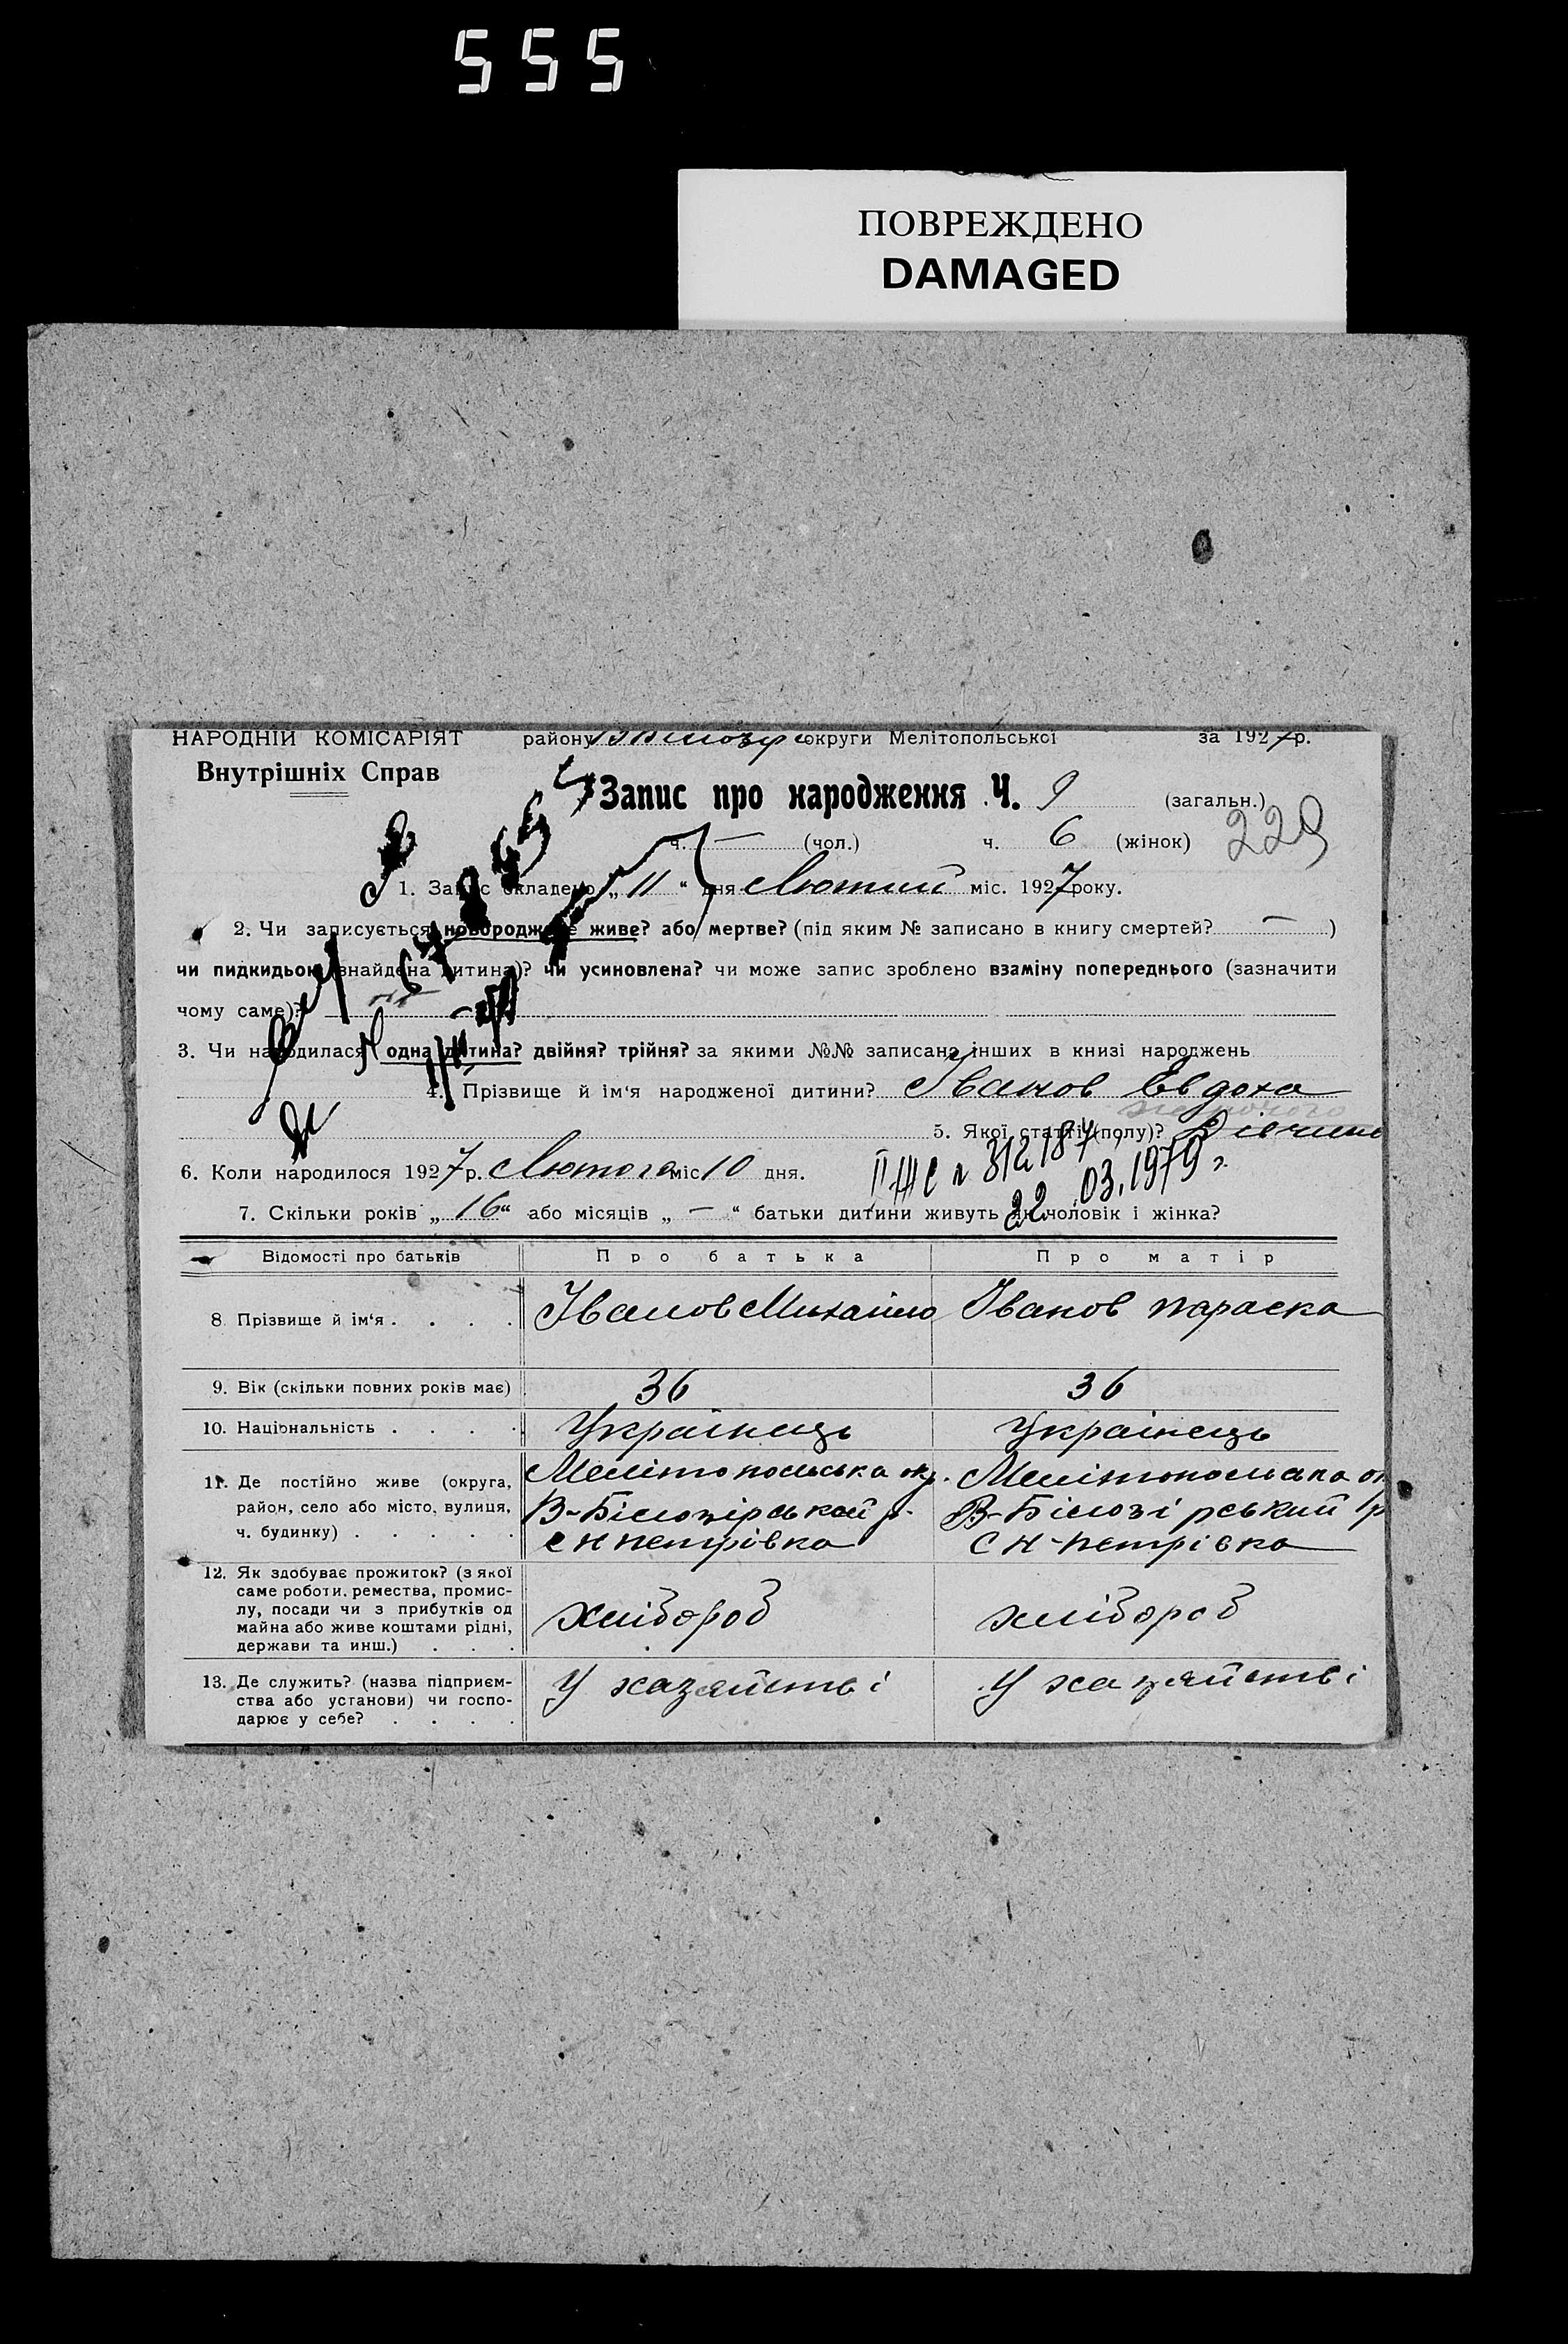 555
ПОВРЕЖДЕНО
DAMAGED
НАРОДНІЙ КОМІСАРІЯТ району округи Мелітопольської за 1927р.
Внутрішніх Справ
Запис про народження Ч. 9 (загальн.)
ч. — (чол.) ч. 6 (жінок) 229
1. Запис складено „11“ дня Лютий міс. 1927року.
2. Чи записується новороджене живе? або мертве? (під яким № записано в книгу смертей? — )
чи пидкидьок (знайдена дитина)? чи усиновлена? чи може запис зроблено взаміну попереднього (зазначити
чому саме)?
3. Чи народилася одна дитина? двійня? трійня? за якими №№ записано інших в книзі народжень
4. Прізвище й ім‘я народженої дитини? Іванов Евдоха
5. Якої статті (полу)? Дівчина
6. Коли народилося 1927р. Лютого міс 10 дня.
22.03.1979 г.
7. Скільки років „16“ або місяців „ — “ батьки дитини живуть як чоловік і жінка?
Відомості про батьків Про батька Про матір
8. Прізвище й ім‘я . . . . Іванов Михайло Іванов параска
9. Вік (скільки повних років має) 36 36
10. Національність . . . . Українець Українець
11. Де постійно живе (округа, Мелітопольська окр. Мелітопольска ок
район, село або місто, вулиця, В-Білозірський р. В-Білозірський р
ч. будинку) . . . . . с Н петрівка С Н-петрівка
12. Як здобуває прожиток? (з якої
саме роботи, ремества, промис-
лу, посади чи з прибутків од хлібороб хлібороб
майна або живе коштами рідні,
держави та инш.) . . .
13. Де служить? (назва підприєм- У хазяйстві У хазяйстві
ства або установи) чи госпо-
дарює у себе? . . . .